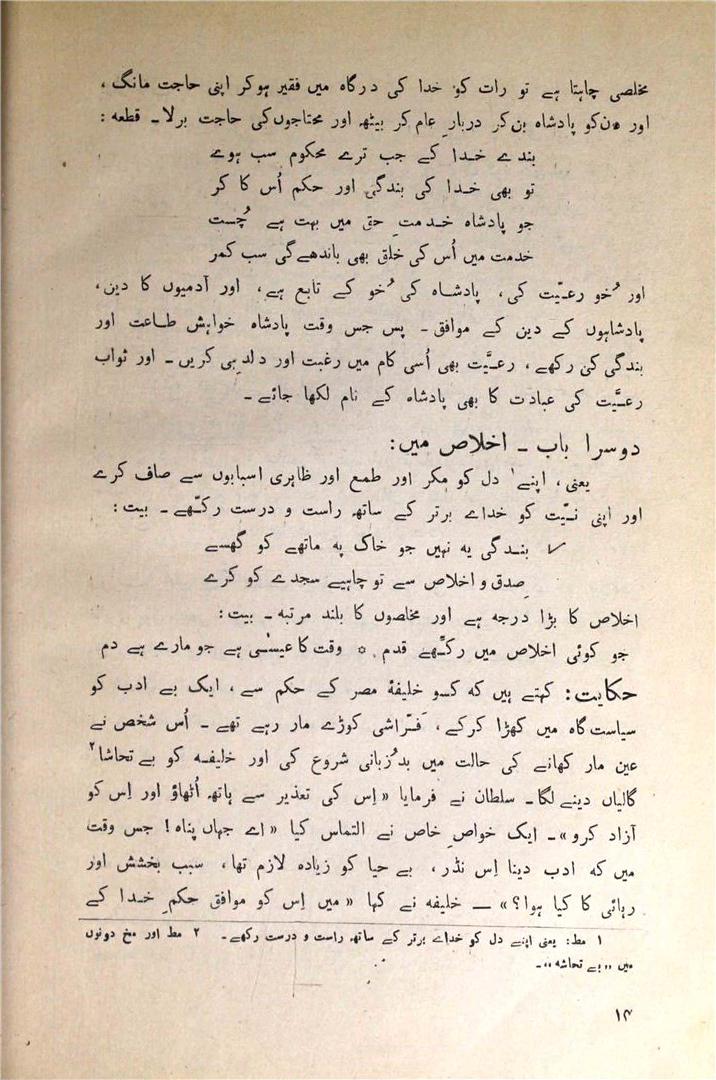 مخلصی چاہتا ہے تو رات کو خدا کی درگاہ میں فقیر ہوکر اپنی حاجت مانگ ،
اور دن کو پادشاہ بن کر دربارِ عام کر بیٹھ اور محتاجوں کی حاجت بر لا ـ قطعہ :
بندے خدا کے جب ترے محکوم سب ہوے
تو بھی خدا کی بندگی اور حکم اُس کا کر
جو پادشاہ خدمتِ حق میں بہت ہے چُست
خدمت میں اُس کی خلق بھی باندھے گی سب کمر
اور خُو رعیّت کی، پادشاہ کی خُو کے تابع ہے، اور آدمیوں کا دین،
پادشاہوں کے دین کے موافق ـ پس جس وقت پادشاہ خواہش طاعت اور
بندگی کی رکھے ، رعیَّت بھی اُسی کام میں رغبت اور دلدہی کریں ـ اور ثواب
رعیَّت کی عبادت کا بھی پادشاہ کے نام لکھا جائے ـ
دوسرا باب ـ اخلاص میں:
یعنی، اپنے ١ دل کو مکر اور طمع اور ظاہری اسبابوں سے صاف کرے
اور اپنی نیّت کو خداے برتر کے ساتھ راست و درست رکّھے ـ بیت :
بندگی یہ نہیں جو خاک پہ ماتھے کو گھسے
صِدق و اخلاص سے تو چاہیے سجدے کو کرے
اخلاص کا بڑا درجہ ہے اور مخلصوں کا بلند مرتبہ ـ بیت :
جو کوئی اخلاص میں رکّھے قدم * وقت کا عیسٰی ہے جو مارے ہے دم
حکایت: کہتے ہیں کہ کسو خلیفۂ مصر کے حکم سے ، ایک بے ادب کو
سیاست گاہ میں کھڑا کرکے ، فَرّاشی کوڑے مار رہے تھے ـ اُس شخص نے
عین مار کھانے کی حالت میں بد زُبانی شروع کی اور خلیفہ کو بے تحاشا ٢
گالیاں دینے لگا ـ سلطان نے فرمایا « اِس کی تعذیر سے ہاتھ اُٹھاؤ اور اِس کو
آزاد کرو » ـ ایک خواصِ خاص نے التماس کیا « اے جہاں پناہ ! جس وقت
میں کہ ادب دینا اِس نڈر، بے حیا کو زیادہ لازم تھا، سبب بخشش اور
رہائی کا کیا ہوا؟ » — خلیفہ نے کہا « میں اِس کو موافق حکمِ خدا کے
١ مط: یعنی اپنے دل کو خداے برتر کے ساتھ راست و درست رکھے ـ ٢ مط اور مخ دونوں
میں ,,بے تحاشہ،، ـ
١۴